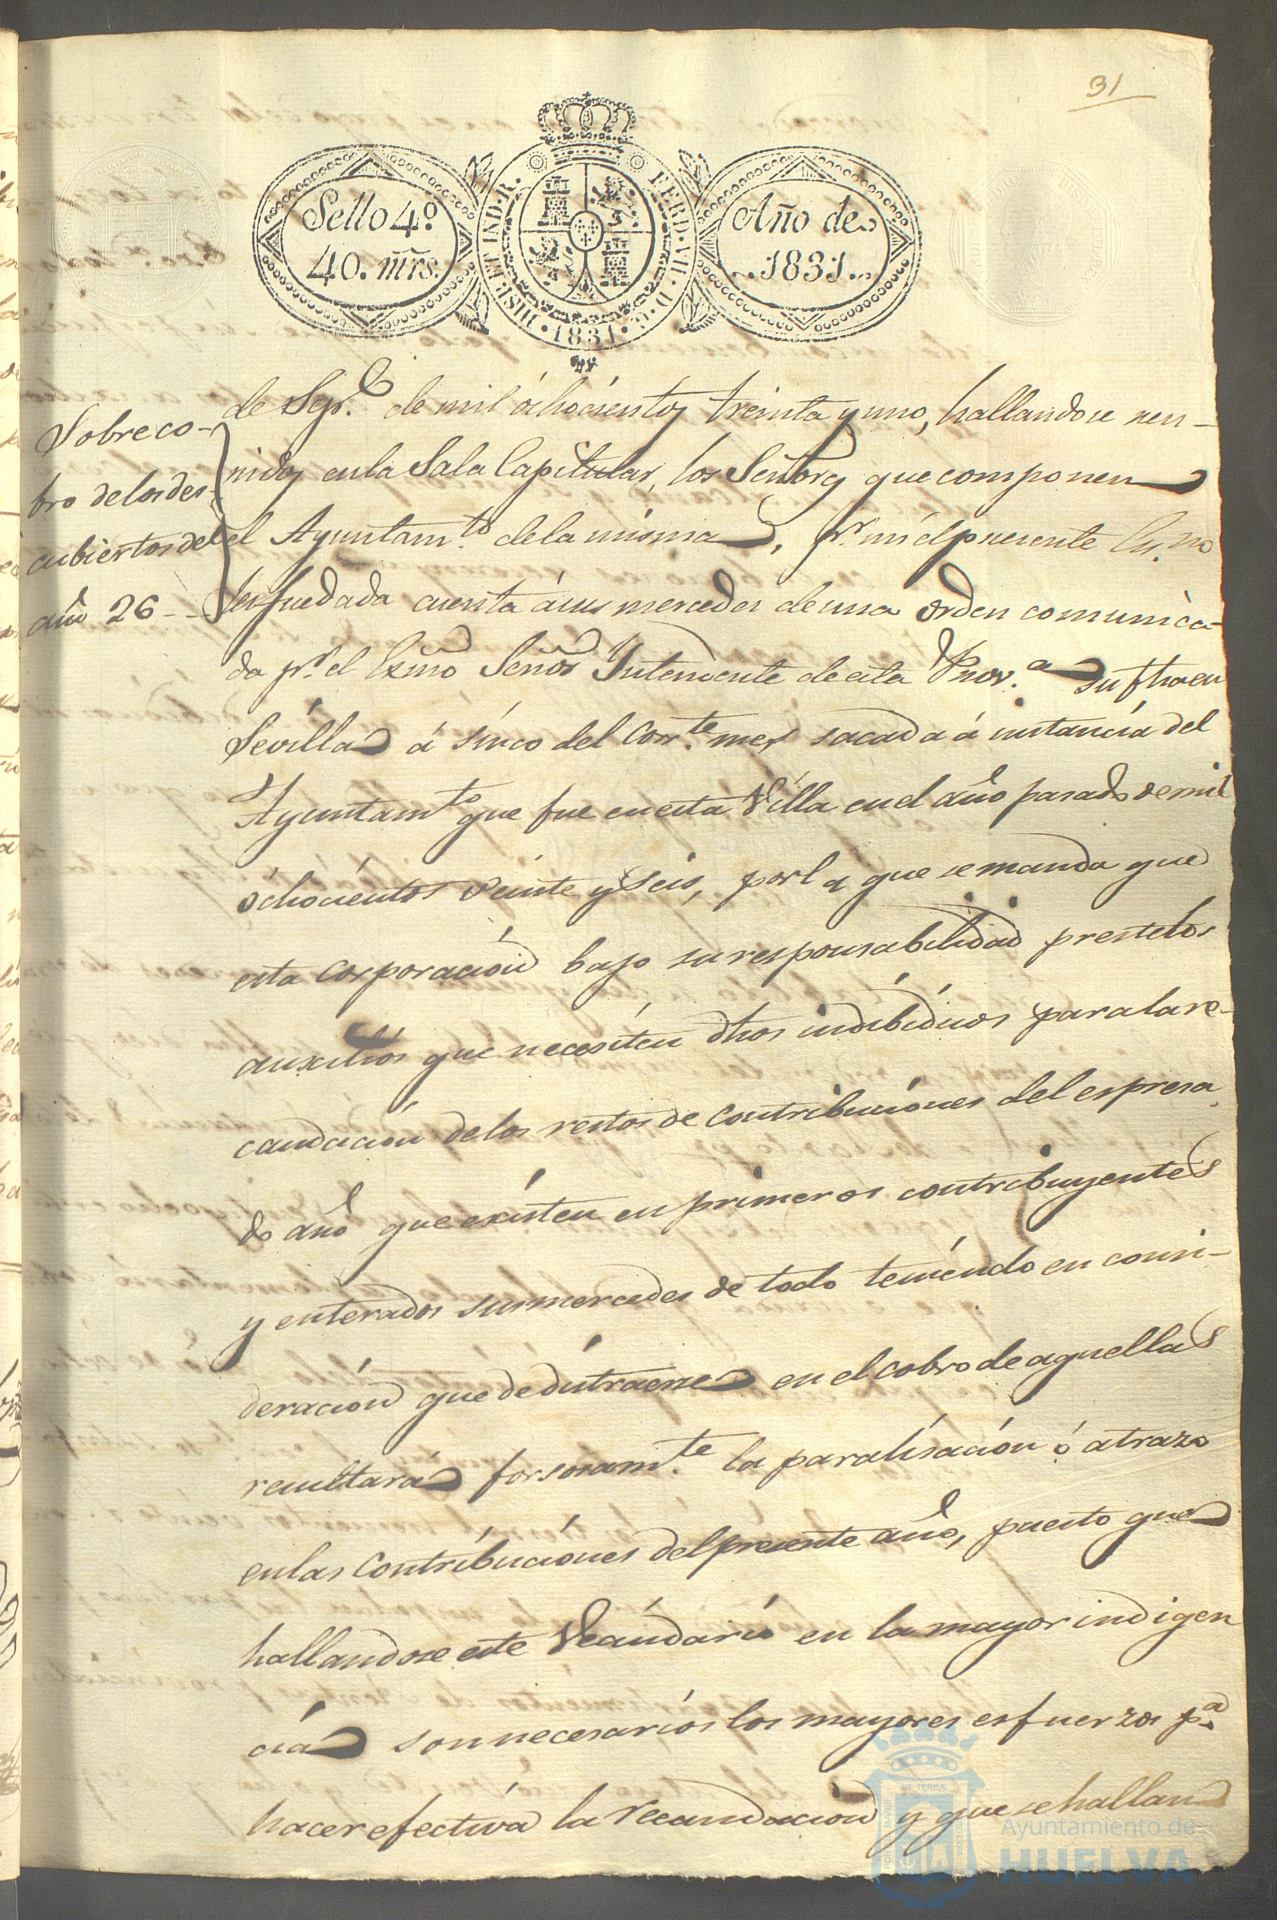 31
Sello 4.º
40. mrs.
HISP. ET IND. R. FERD. VII. D. G. 1831
Año de
1831.
Sobre co-
bro de los des-
cubiertos del
año 26 -
de Sepr.e de mil óchocientos treinta y uno, hallandose reu-
nidos en la Sala Capitular, los Señores que componen
el Ayuntam.to de la misma, pr. mi el presente Es.no
les fue dada cuenta á sus mercedes de una órden comunica-
da pr. el Exmo Señor Intendente de esta Prov.a su fha en
Sevilla á sinco del corr.te mes sacada á instancia del
Ayuntam.to que fue en esta Villa en el año pasado de mil
óchocientos veinte y seis, por la que se manda que
esta corporación bajo su responsabilidad preste los
auxilios que necesiten dhos indibiduos para la re-
caudación de los restos de contribuciones del espresa
do año que existen en primeros contribuyentes
y enterados sus mercedes de todo teniendo en consi-
deración que de distraerse en el cobro de aquellas
resultará forsosam.te la paralisación ó atrazo
en las contribuciones del presente año, puesto que
hallandose este Vecindario en la mayor indigen
cia son necesarios los mayores esfuerzos p.a
hacer efectiva la recaudación y que se hallan
Ayuntamiento de
HUELVA